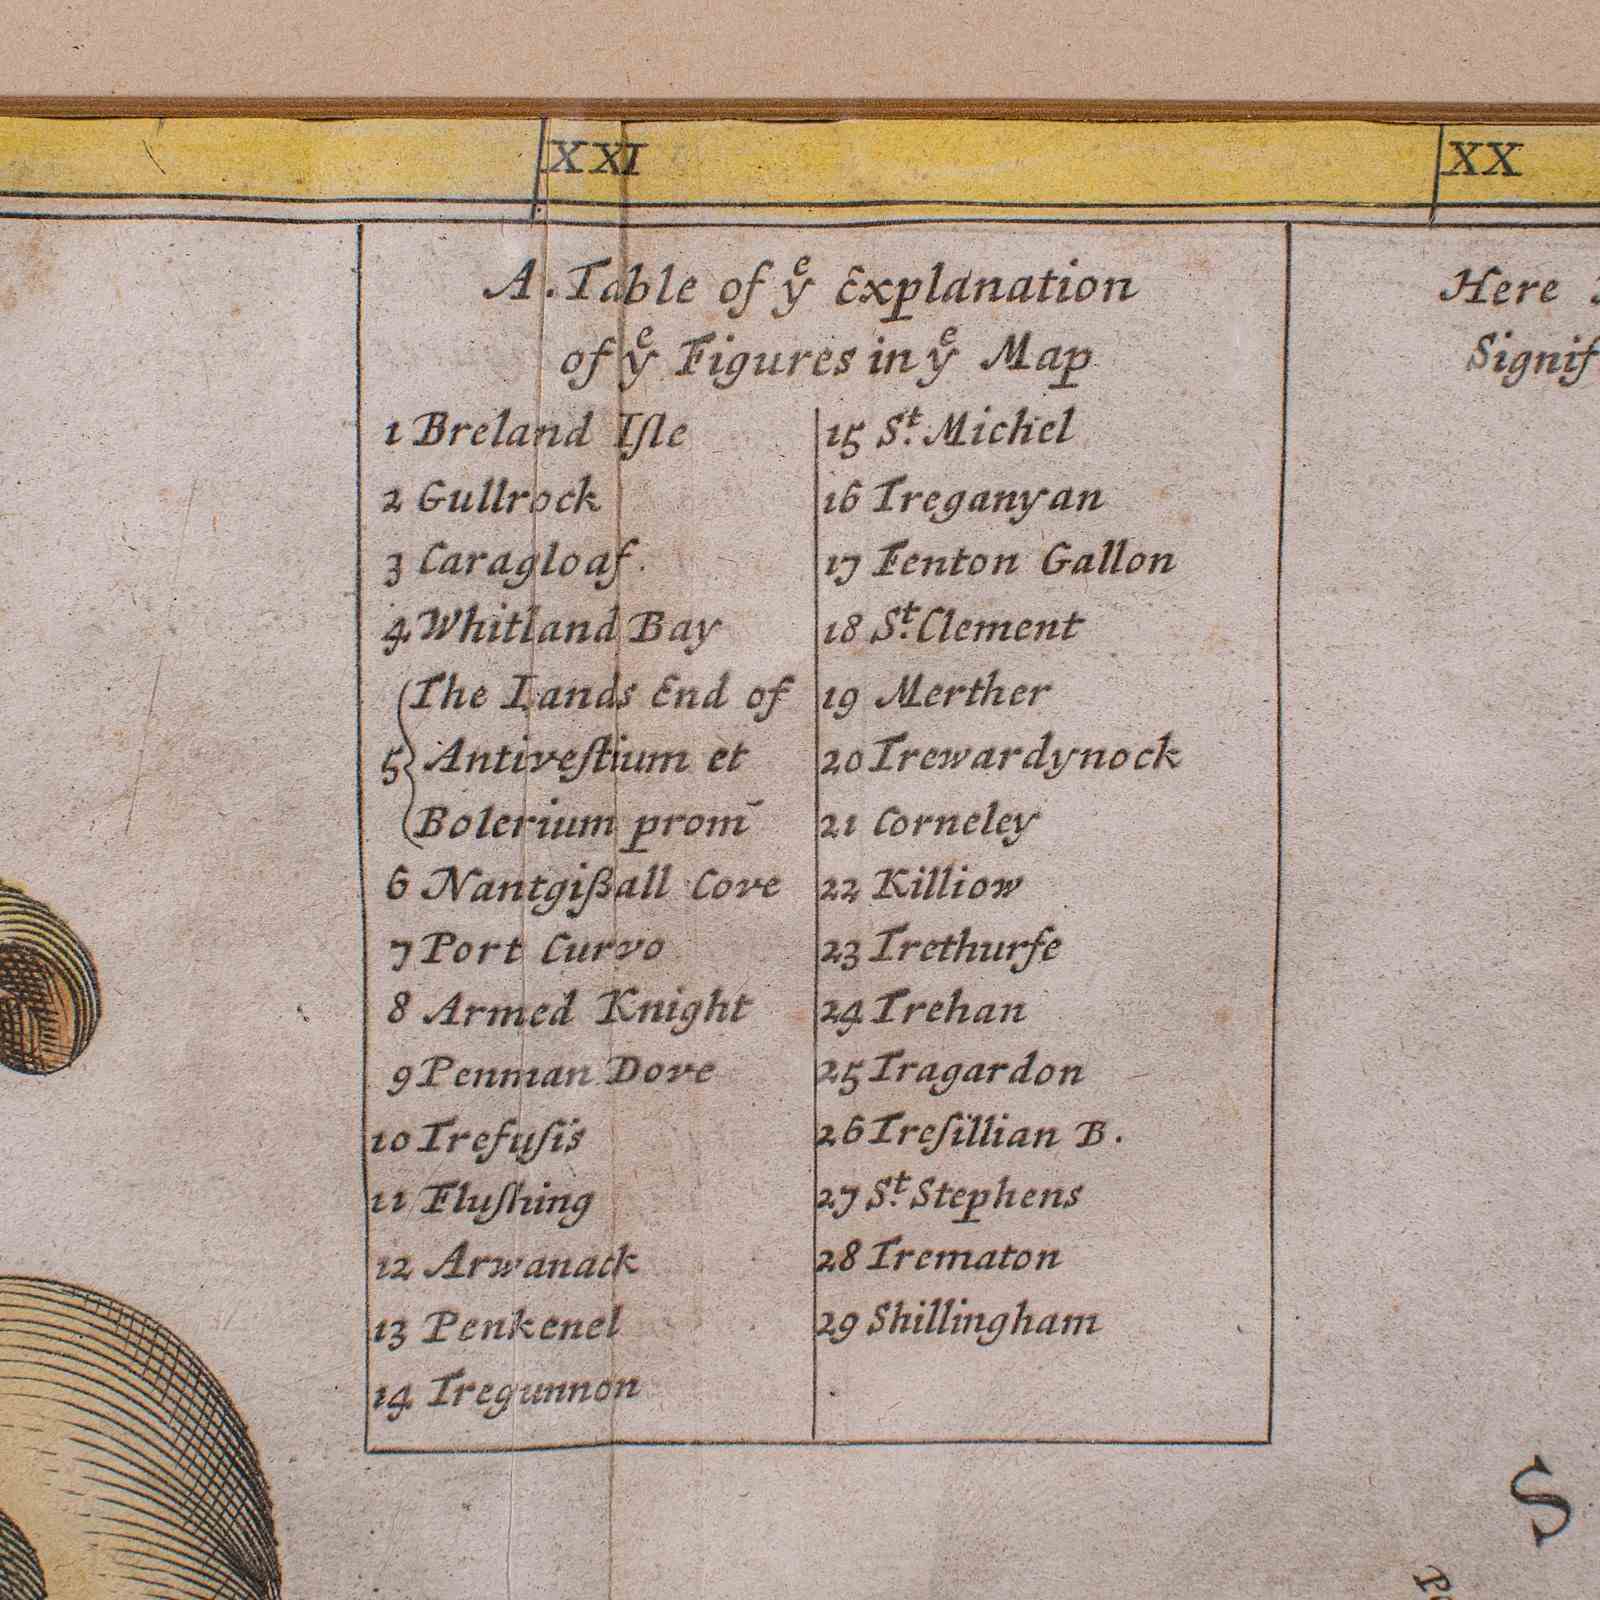 XXI XX
A. Table of yᵉ Explanation
of yᵉ Figures in yᵉ Map
1 Breland Iſle
2 Gullrock
3 Caragloaf.
4 Whitland Bay
5 {The Lands End of
Antiveſtium et
Bolerium prom̄
6 Nantgißall Cove
7 Port Curvo
8 Armed Knight
9 Penman Dove
10 Trefuſis
11 Fluſhing
12 Arwanack
13 Penkenel
14 Tregunnon
15 Sᵗ. Michel
16 Treganyan
17 Fenton Gallon
18 Sᵗ. Clement
19 Merther
20 Trewardynock
21 Corneley
22 Killiow
23 Trethurfe
24 Trehan
25 Tragardon
26 Treſillian B.
27 Sᵗ. Stephens
28 Trematon
29 Shillingham
Here
Signif
S